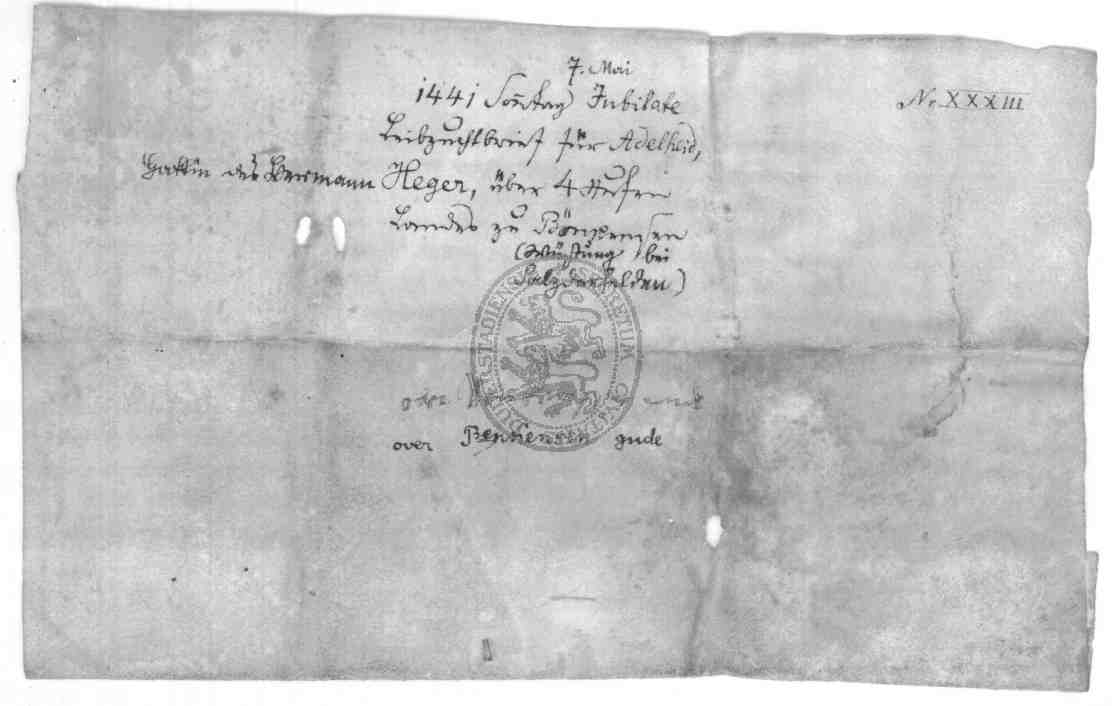 7. Mai
1441 Sonntag Jubilate
Nr XXXIII
Leibzuchtbrief für Adelheid,
Gattin des Hermann Heger, über 4 Hufen
Landes zu
(Wüstung bei
Salzderhelden)
over gude